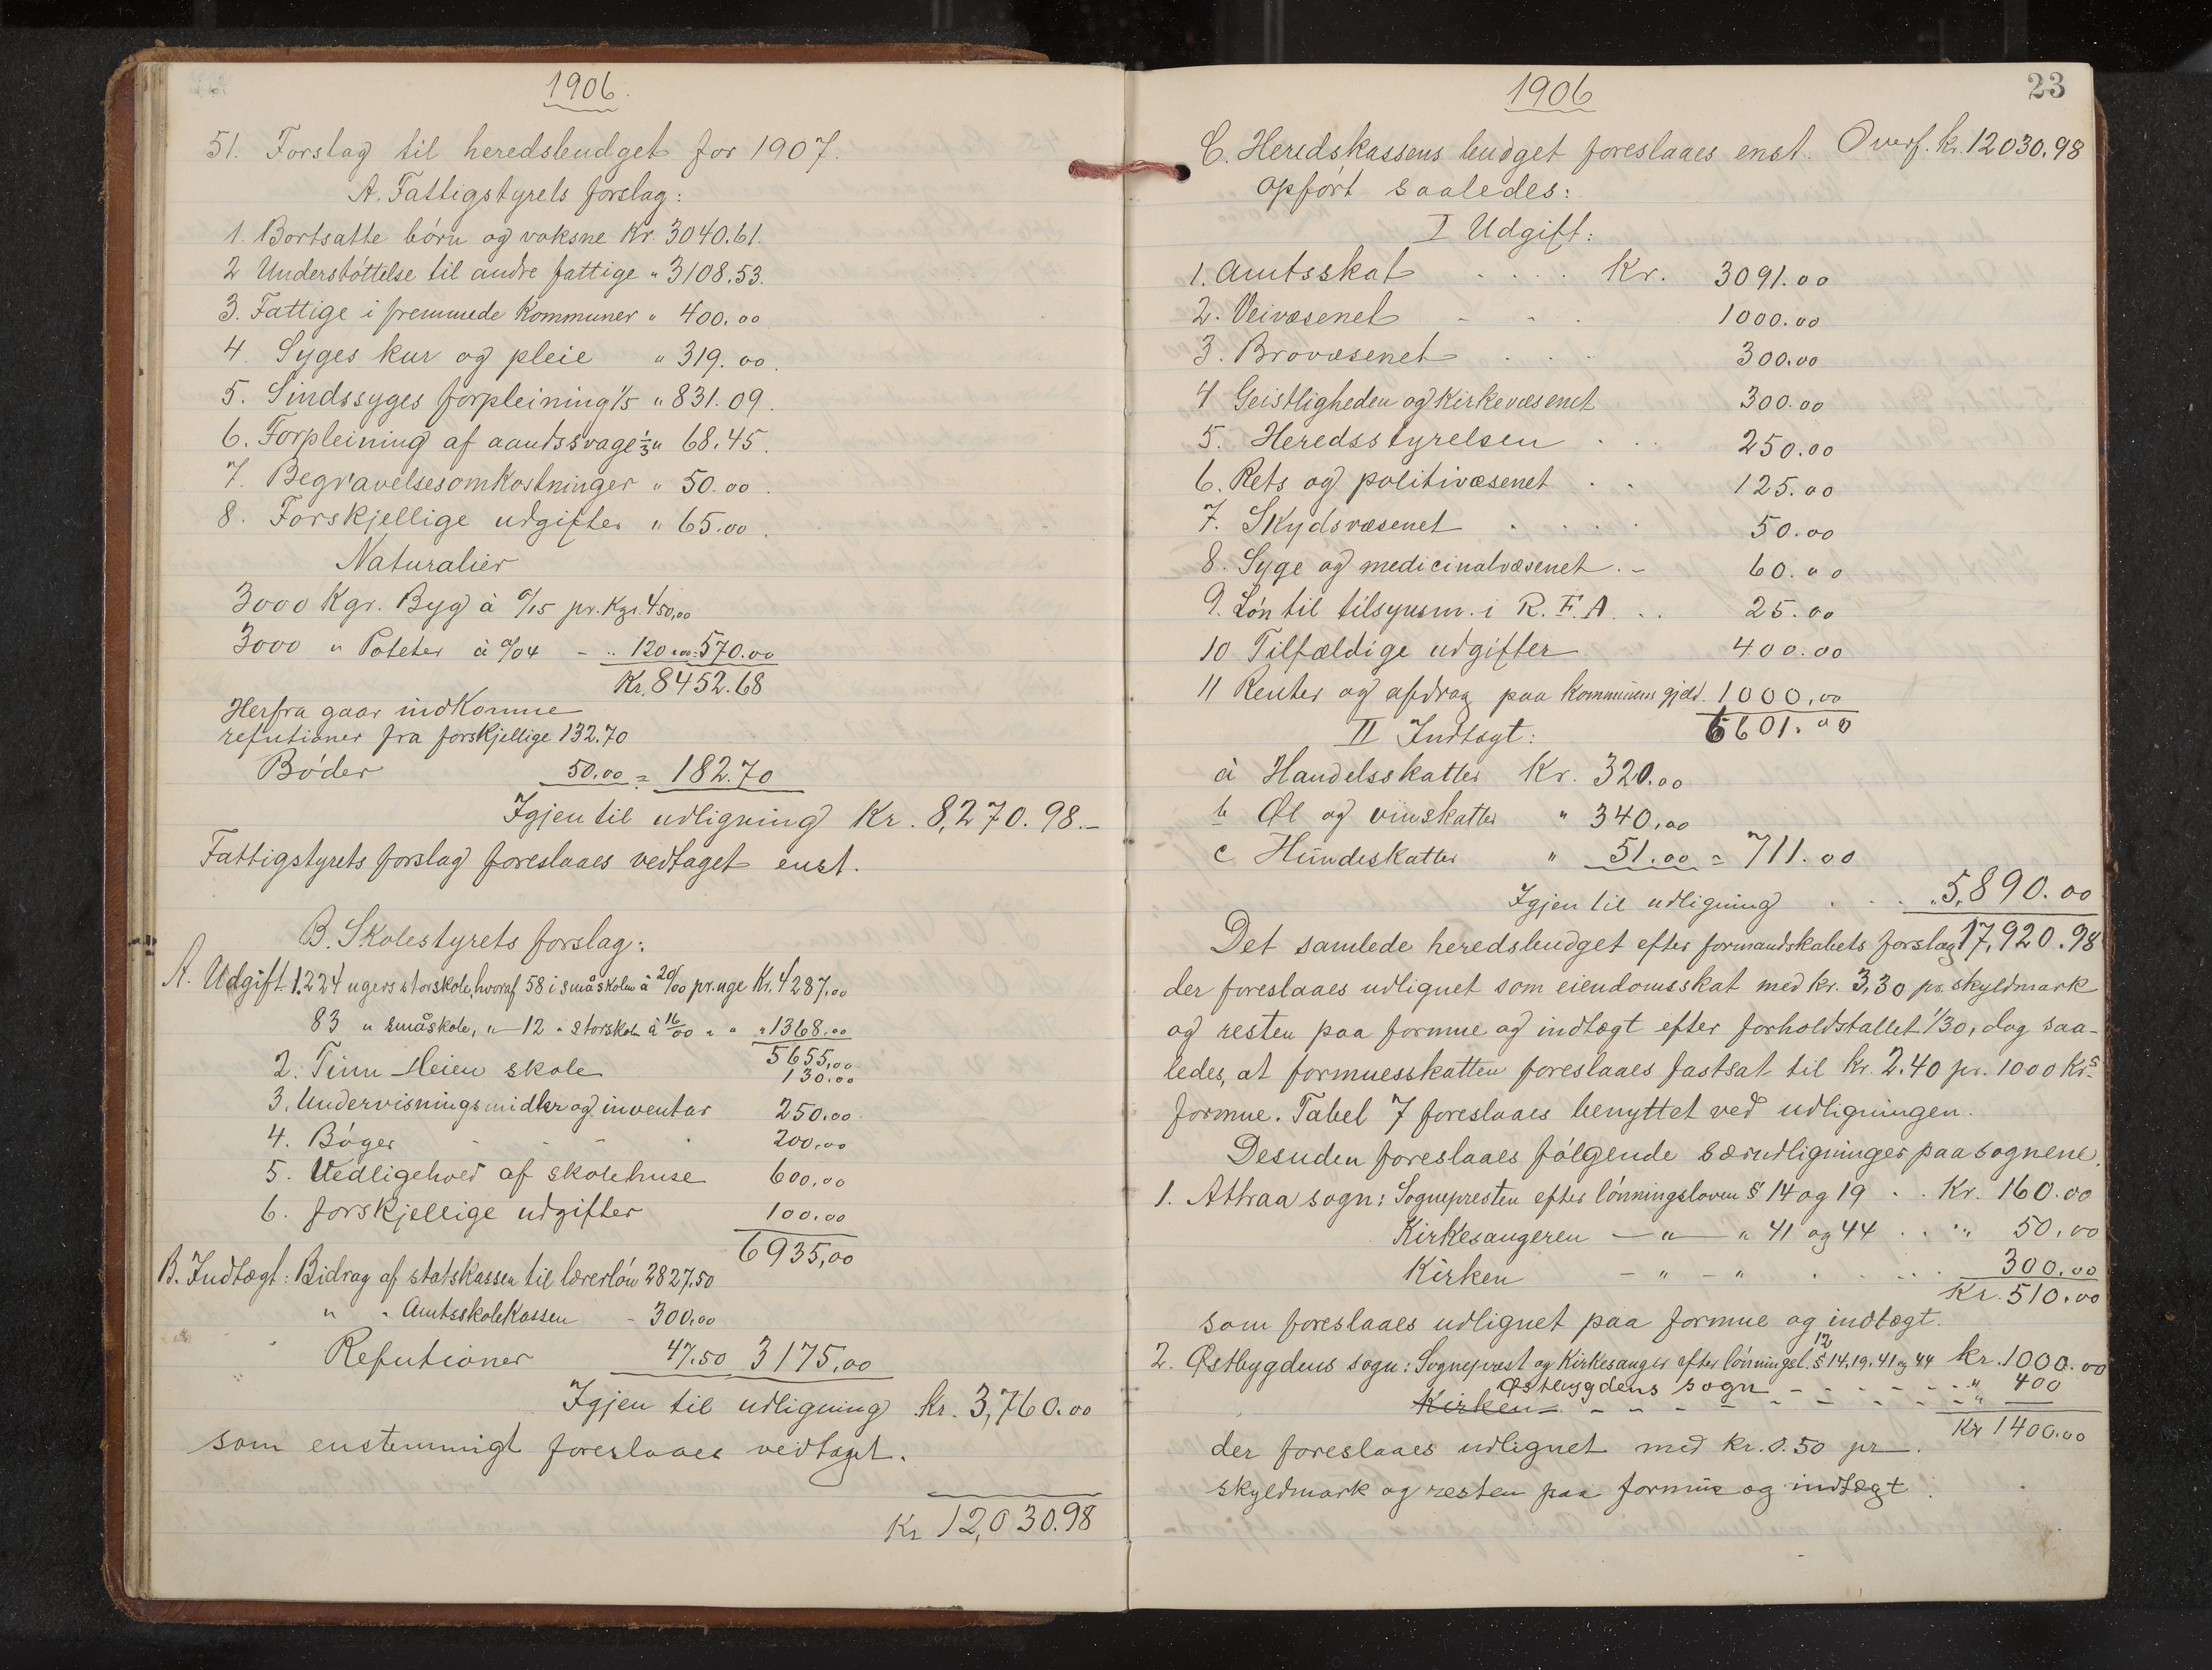 1906.
51. Forslag til heredsbudget for 1907.
A. Fattigstyrels forslag:
1. Bortsatte børn og voksne Kr. 3040.61.
2 Understøttelse til andre fattige " 3108.53.
3. Fattige i fremmede Kommuner " 400.00
4. Syges kur og pleie " 319.00.
5. Sindssyges forpleining 1/5 " 831.09.
6. Forpleining af aandssvage 1/3 " 68.45.
7. Begravelsesomkostninger " 50.00.
8. Forskjellige udgifter " 65.00.
Naturalier
3000 Kgr. Byg à 0/15 pr. Kgr. 450,00
3000 " Poteter à 0/04 - " 120.00 = 570.00
Kr. 8452.68
Herfra gaar indkomne
refutioner fra forskjellige 132.70
Bøder 50.00 = 182.70
Igjen til udligning Kr. 8,270.98.-
Fattigstyrets forslag foreslaaes vedtaget enst.
B. Skolestyrets forslag:
A. Udgift. 1. 224 ugers storskole, hvoraf 58 i småskolen à 20/00 pr. uge Kr. 4287,00
83 " småskole, " - 12 " storskole à 16/00 " " " 1368.00
5655,00
2. Tinn Meien skole 130.00
3. Undervisningsmidler og inventar 250.00.
4. Bøger - - - . 200,00
5. Vedligehold af skolehuse 600,00
6. forskjellige udgifter 100.00
6935,00
B. Indtægt: Bidrag af statskassen til lærerløn 2827.50
" " Amtsskolekassen - 300,00
Refutioner 47.50 3175,00
Igjen til udligning Kr. 3,760.00
som enstemmigt foreslaaes vedtaget.
Kr 12,030.98
1906
23
C. Heredskassens budget foreslaaes enst. Overf. kr. 12030.98
opført saaledes:
I Udgift:
1. Amtsskat . . . . Kr. 3091.00
2. Veivæsenet - - . 1000.00
3. Brovæsenet . . . 300.00
4 Geistligheden og Kirkevæsenet 300.00
5. Heredsstyrelsen . . . 250.00
6. Rets og politivæsenet . . 125.00
7. Skydsvæsenet . . . . 50.00
8. Syge og medicinalvæsenet . - 60.00
9. Løn til tilsynsm. i R. F. A. . . 25.00
10 Tilfældige udgifter 400.00
11 Renter og afdrag paa kommunens gjæld. 1000,00
6601.00
II Indtægt:
à Handelsskatter Kr. 320.00
b Øl og vinskatter " 340,00
c Hundeskatter " 51.00 = 711.00
Igjen til udligning . . . 5,890.00
Det samlede heredsbudget efter formandskabets forslag 17,920.98
der foreslaaes udlignet som eiendomsskat med kr. 3,30 pr. skyldmark
og resten paa formue og indtægt efter forholdstallet 1/30, dog saa-
ledes, at formuesskatten foreslaaes fastsat til kr. 2.40 pr. 1000 Krs
formue. Tabel 7 foreslaaes benyttet ved udligningen.
Desuden foreslaaes følgende særudligninger paa sognene.
1. Attraa sogn: Sognepresten efter lønningsloven § 14 og 19 . . Kr. 160.00
Kirkesangeren — " — " 41 og 44 . . " 50.00
Kirken - " - " . . . . 300.00
Kr. 510.00
som foreslaaes udlignet paa formue og indtægt.
2. Østbygdens sogn: Sogneprest og Kirkesanger efter lønningsl. § 12 14, 19, 41 og 44 kr. 1000.00
Østbygdens sogn - - - - - " 400
Kirken - - - - - - - - "
Kr 1400.00
der foreslaaes udlignet med kr. 0.50 pr.
skyldmark og resten paa formue og indtægt.